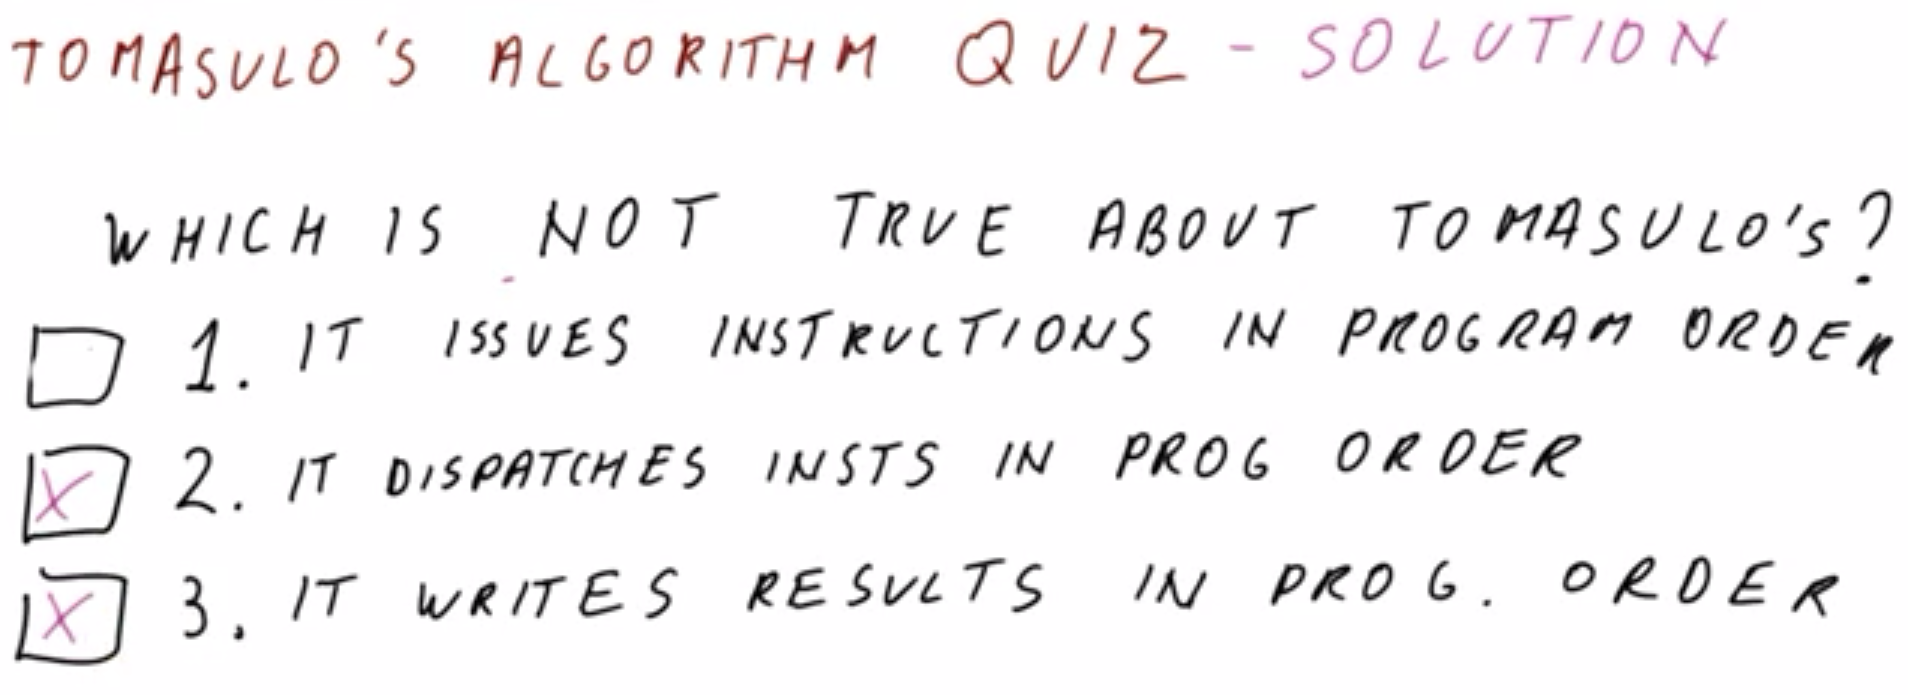 TOMASULO'S ALGORITHM QUIZ - SOLUTION
WHICH IS NOT TRUE ABOUT TOMASULO'S?
1. IT ISSUES INSTRUCTIONS IN PROGRAM ORDER
X 2. IT DISPATCHES INSTS IN PROG ORDER
X 3. IT WRITES RESULTS IN PROG. ORDER